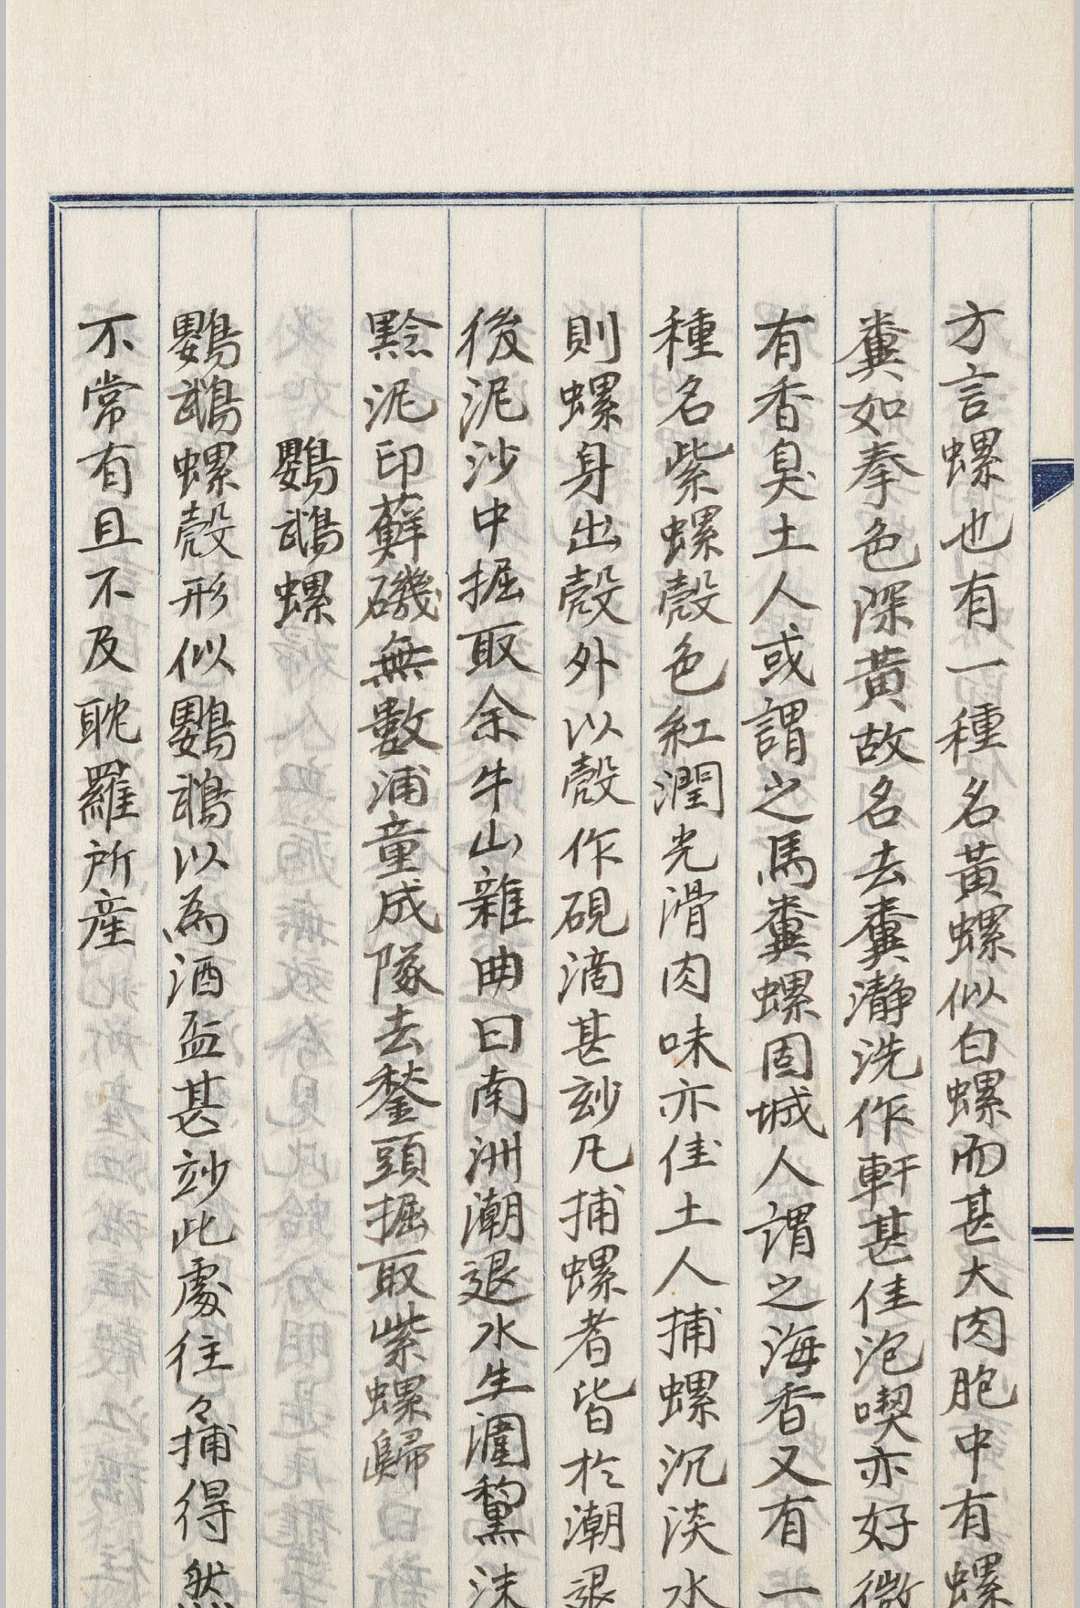 方言螺也有一種名黃螺似白螺而甚大肉胞中有螺
糞如拳色深黃故名去糞瀞洗作軒甚佳泡喫亦好微
有香臭土人或謂之馬糞螺固城人謂之海香又有一
種名紫螺殼色紅潤光滑肉味亦佳土人捕螺沉淡水
則螺身出殼外以殼作硯滴甚玅凡捕螺者皆於潮退
後泥沙中掘取余牛山雜曲曰南洲潮退水生瀾黧沫
黯泥印蘚磯無數浦童成隊去鏊頭掘取紫螺歸
鸚鵡螺
鸚鵡螺殼形似鸚鵡以為酒盃甚玅此處往々捕得然
不常有且不及耽羅所産